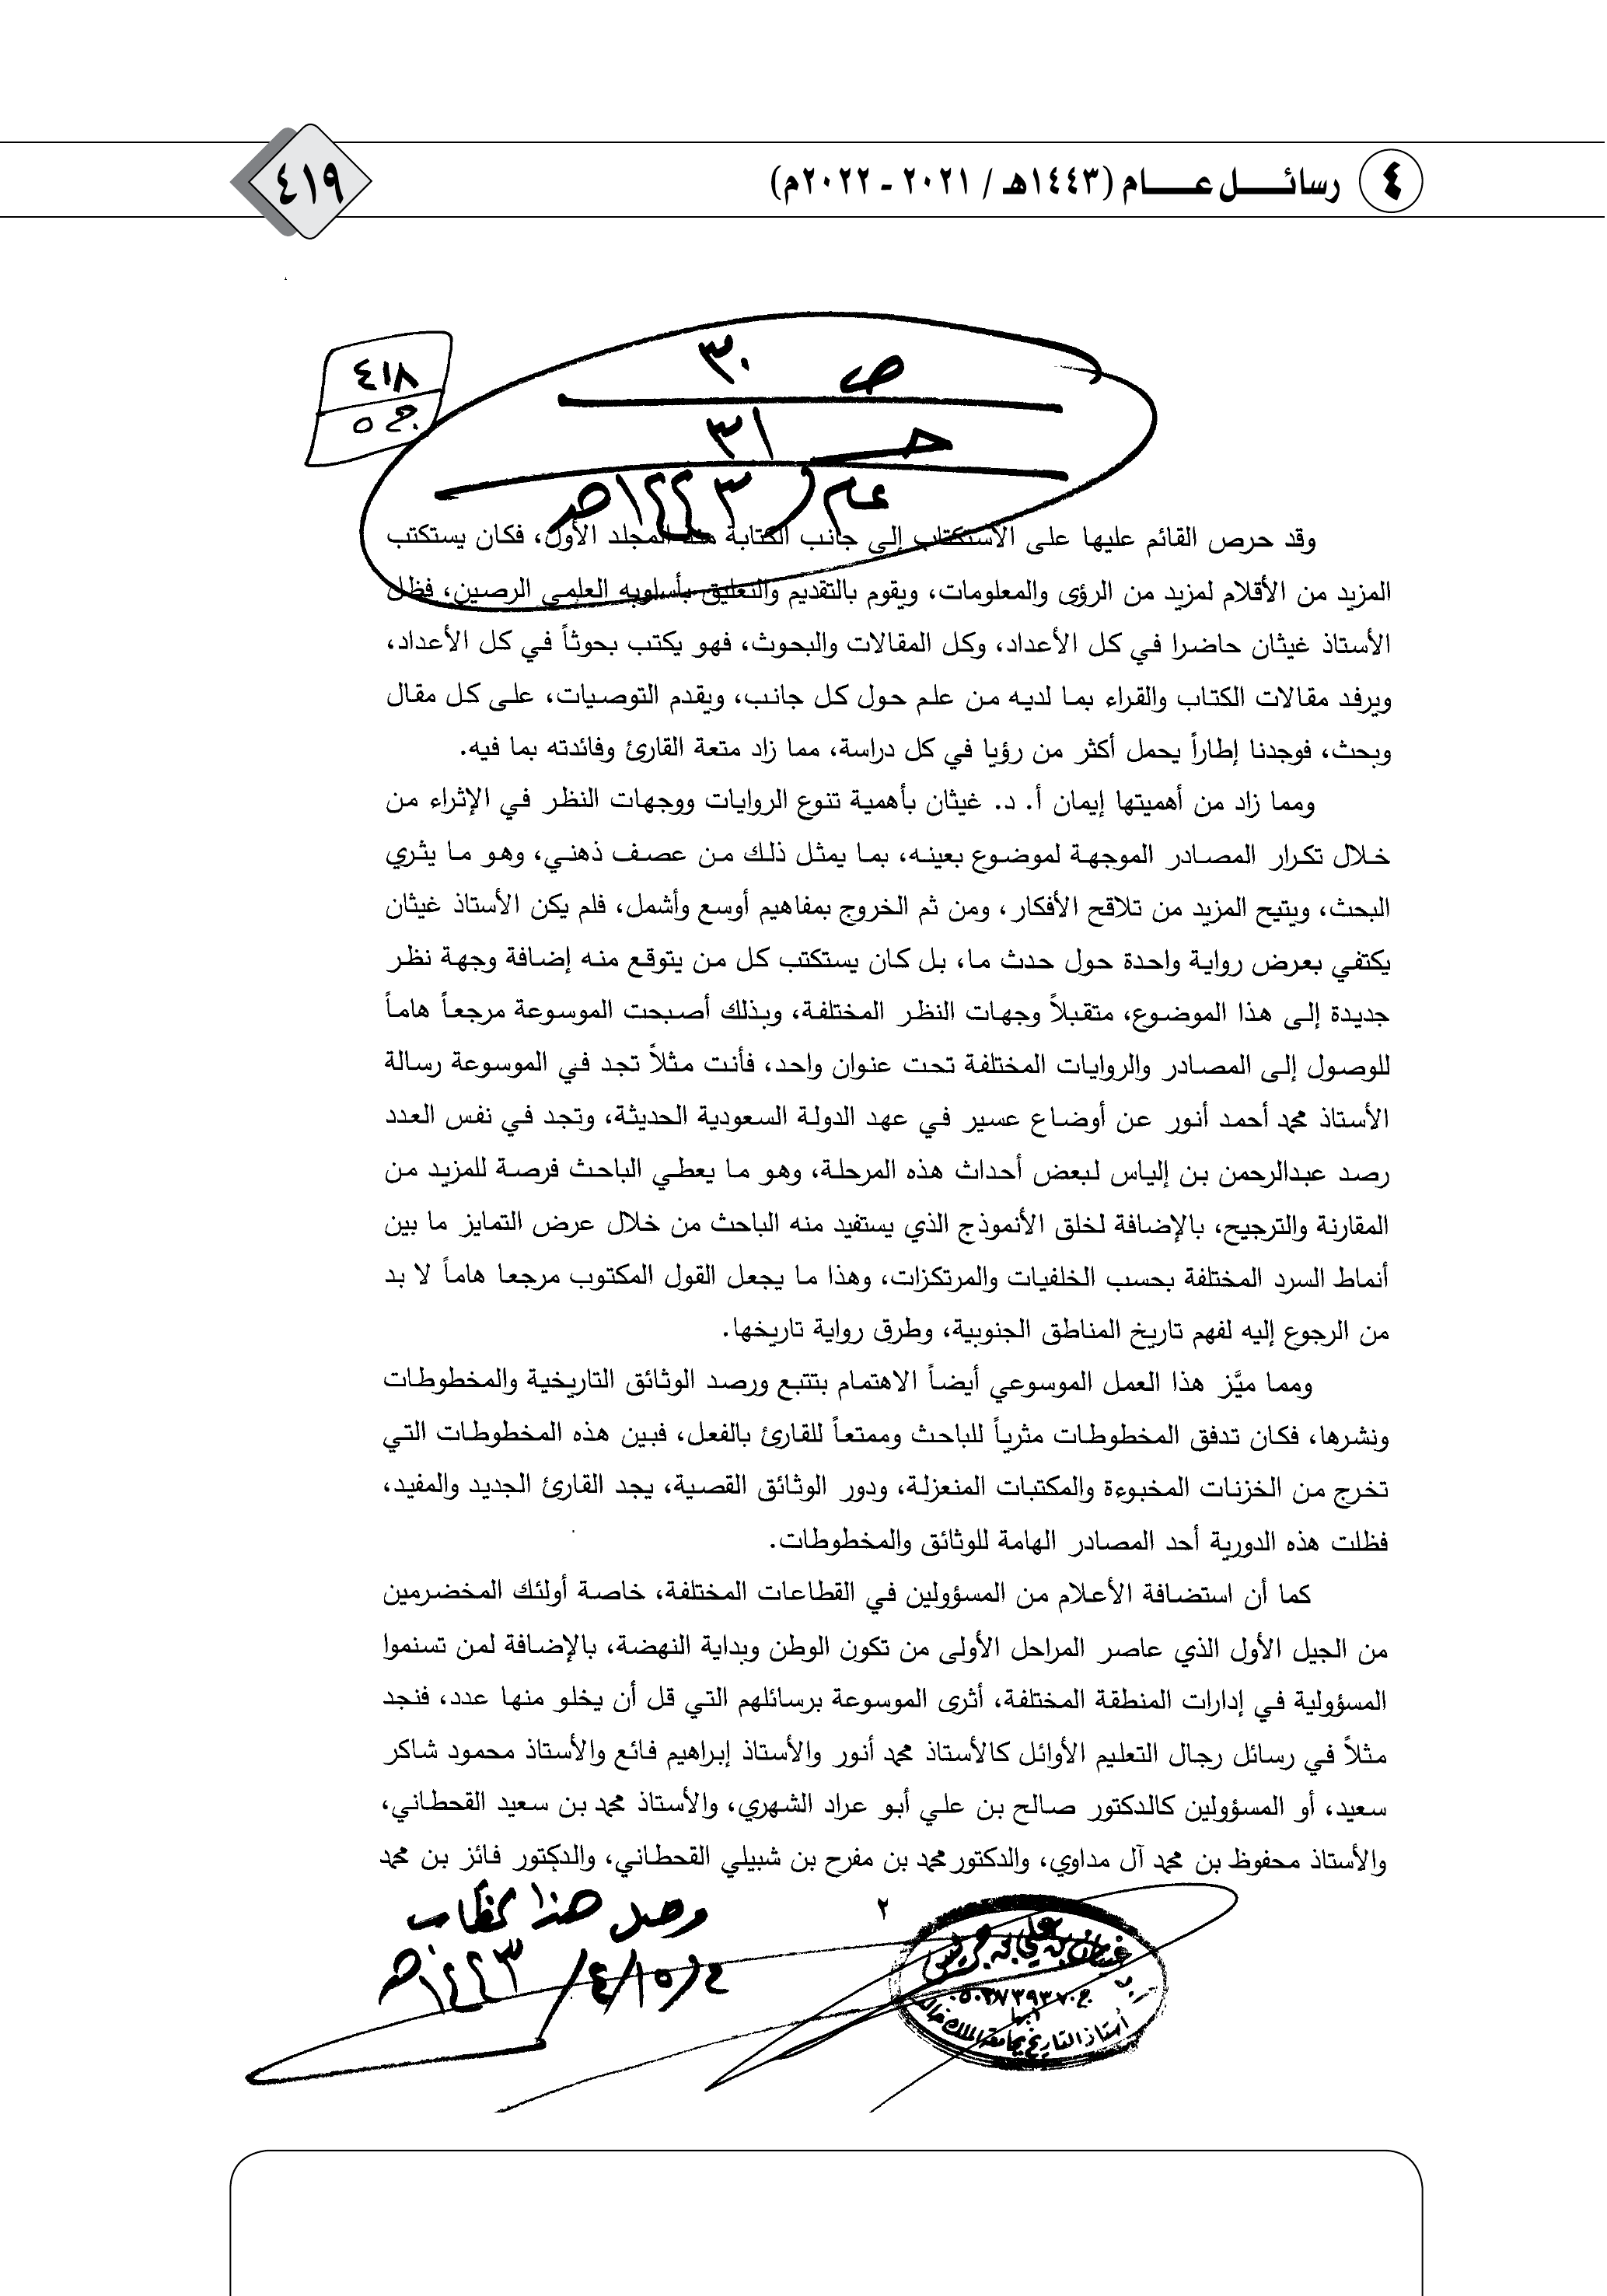 ٤ رسائل عام (١٤٤٣هـ / ٢٠٢١ - ٢٠٢٢م)
٤١٩
٤١٨
ج ٥
ص ٣٠
ح ٣١
عام / ١٤٤٣هـ
وقد حرص القائم عليها على الاستكتاب إلى جانب الكتابة منذ المجلد الأول، فكان يستكتب
المزيد من الأقلام لمزيد من الرؤى والمعلومات، ويقوم بالتقديم والتعليق بأسلوبه العلمي الرصين، فظل
الأستاذ غيثان حاضرا في كل الأعداد، وكل المقالات والبحوث، فهو يكتب بحوثاً في كل الأعداد،
ويرفد مقالات الكتاب والقراء بما لديه من علم حول كل جانب، ويقدم التوصيات، على كل مقال
وبحث، فوجدنا إطاراً يحمل أكثر من رؤيا في كل دراسة، مما زاد متعة القارئ وفائدته بما فيه.
ومما زاد من أهميتها إيمان أ. د. غيثان بأهمية تنوع الروايات ووجهات النظر في الإثراء من
خلال تكرار المصادر الموجهة لموضوع بعينه، بما يمثل ذلك من عصف ذهني، وهو ما يثري
البحث، ويتيح المزيد من تلاقح الأفكار، ومن ثم الخروج بمفاهيم أوسع وأشمل، فلم يكن الأستاذ غيثان
يكتفي بعرض رواية واحدة حول حدث ما، بل كان يستكتب كل من يتوقع منه إضافة وجهة نظر
جديدة إلى هذا الموضوع، متقبلاً وجهات النظر المختلفة، وبذلك أصبحت الموسوعة مرجعاً هاماً
للوصول إلى المصادر والروايات المختلفة تحت عنوان واحد، فأنت مثلاً تجد في الموسوعة رسالة
الأستاذ محمد أحمد أنور عن أوضاع عسير في عهد الدولة السعودية الحديثة، وتجد في نفس العدد
رصد عبدالرحمن بن إلياس لبعض أحداث هذه المرحلة، وهو ما يعطي الباحث فرصة للمزيد من
المقارنة والترجيح، بالإضافة لخلق الأنموذج الذي يستفيد منه الباحث من خلال عرض التمايز ما بين
أنماط السرد المختلفة بحسب الخلفيات والمرتكزات، وهذا ما يجعل القول المكتوب مرجعا هاماً لا بد
من الرجوع إليه لفهم تاريخ المناطق الجنوبية، وطرق رواية تاريخها.
ومما ميَّز هذا العمل الموسوعي أيضاً الاهتمام بتتبع ورصد الوثائق التاريخية والمخطوطات
ونشرها، فكان تدفق المخطوطات مثرياً للباحث وممتعاً للقارئ بالفعل، فبين هذه المخطوطات التي
تخرج من الخزنات المخبوءة والمكتبات المنعزلة، ودور الوثائق القصية، يجد القارئ الجديد والمفيد،
فظلت هذه الدورية أحد المصادر الهامة للوثائق والمخطوطات.
كما أن استضافة الأعلام من المسؤولين في القطاعات المختلفة، خاصة أولئك المخضرمين
من الجيل الأول الذي عاصر المراحل الأولى من تكون الوطن وبداية النهضة، بالإضافة لمن تسنموا
المسؤولية في إدارات المنطقة المختلفة، أثرى الموسوعة برسائلهم التي قل أن يخلو منها عدد، فنجد
مثلاً في رسائل رجال التعليم الأوائل كالأستاذ محمد أنور والأستاذ إبراهيم فائع والأستاذ محمود شاكر
سعيد، أو المسؤولين كالدكتور صالح بن علي أبو عراد الشهري، والأستاذ محمد بن سعيد القحطاني،
والأستاذ محفوظ بن محمد آل مداوي، والدكتور محمد بن مفرح بن شبيلي القحطاني، والدكتور فائز بن محمد
٢
وصل هذا الخطاب
في ١٥/٤/١٤٤٣هـ
غيثان بن علي بن جريس
أبها
أستاذ التاريخ بجامعة الملك خالد